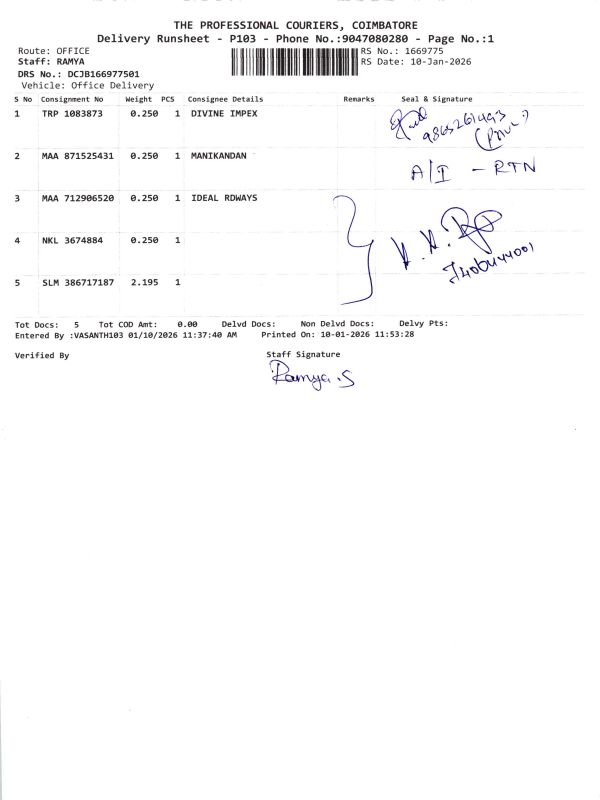 THE PROFESSIONAL COURIERS, COIMBATORE
Delivery Runsheet - P103 - Phone No.:9047080280 - Page No.:1
Route: OFFICE RS No.: 1669775
Staff: RAMYA RS Date: 10-Jan-2026
DRS No.: DCJB166977501
Vehicle: Office Delivery
S No Consignment No Weight PCS Consignee Details Remarks Seal & Signature
1 TRP 1083873 0.250 1 DIVINE IMPEX
9865261493
2 MAA 871525431 0.250 1 MANIKANDAN A/I - RTN
3 MAA 712906520 0.250 1 IDEAL RDWAYS
4 NKL 3674884 0.250 1
5 SLM 386717187 2.195 1
Tot Docs: 5 Tot COD Amt: 0.00 Delvd Docs: Non Delvd Docs: Delvy Pts:
Entered By :VASANTH103 01/10/2026 11:37:40 AM Printed On: 10-01-2026 11:53:28
Verified By Staff Signature
Ramya.S